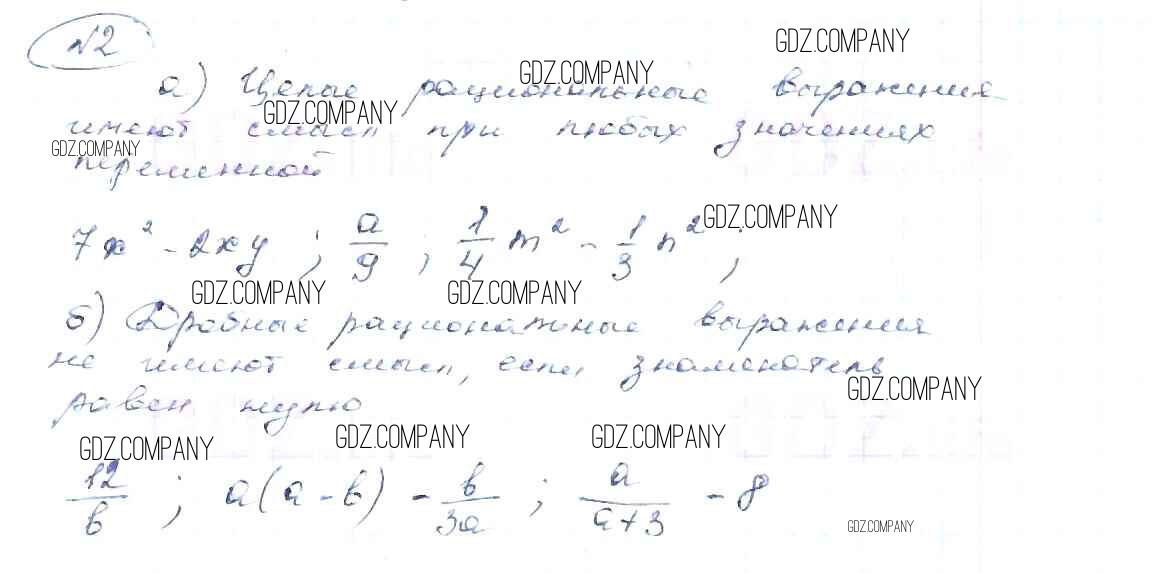 №2
а) Целые рациональные выражения
имеют смысл при любых значениях
переменной
7x² - 2xy ; a/9 ; 1/4 m² - 1/3 n² ;
б) Дробные рациональные выражения
не имеют смысл, если знаменатель
равен нулю
12/b ; a(a - b) - b/3a ; a/a+3 - 8
GDZ.COMPANY
GDZ.COMPANY
GDZ.COMPANY
GDZ.COMPANY
GDZ.COMPANY
GDZ.COMPANY
GDZ.COMPANY
GDZ.COMPANY
GDZ.COMPANY
GDZ.COMPANY
GDZ.COMPANY
GDZ.COMPANY